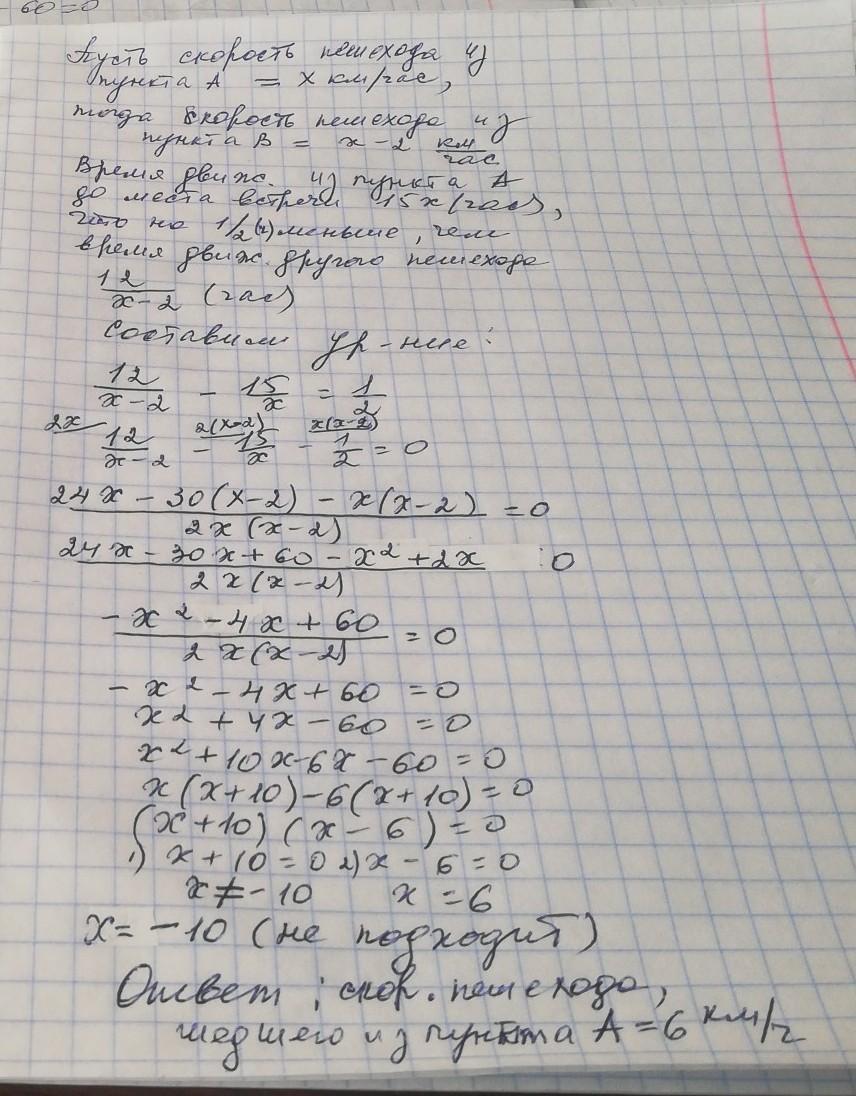 - 60=0
Пусть скорость пешехода из
пункта А = x км/час,
тогда скорость пешехода из
пункта В = x-2 км/час
Время движ. из пункта А
до места встречи 15x(час),
что на 1/2(ч)меньше, чем
время движ. другого пешехода
12/(x-2) (час)
Составим ур-ние:
12/(x-2) - 15/x = 1/2
2x 12/(x-2) - 2(x-2) 15/x - x(x-2) 1/2 = 0
(24x - 30(x-2) - x(x-2))/(2x(x-2)) = 0
(24x - 30x + 60 - x² + 2x)/(2x(x-2)) :0
(-x² - 4x + 60)/(2x(x-2)) = 0
- x² - 4x + 60 = 0
x² + 4x - 60 = 0
x² + 10x - 6x - 60 = 0
x(x+10) - 6(x+10) = 0
(x+10) (x - 6) = 0
1) x + 10 = 0 2) x - 6 = 0
x ≠ -10 x = 6
x = -10 (не подходит)
Ответ: скор. пешехода,
шедшего из пункта А = 6 км/ч